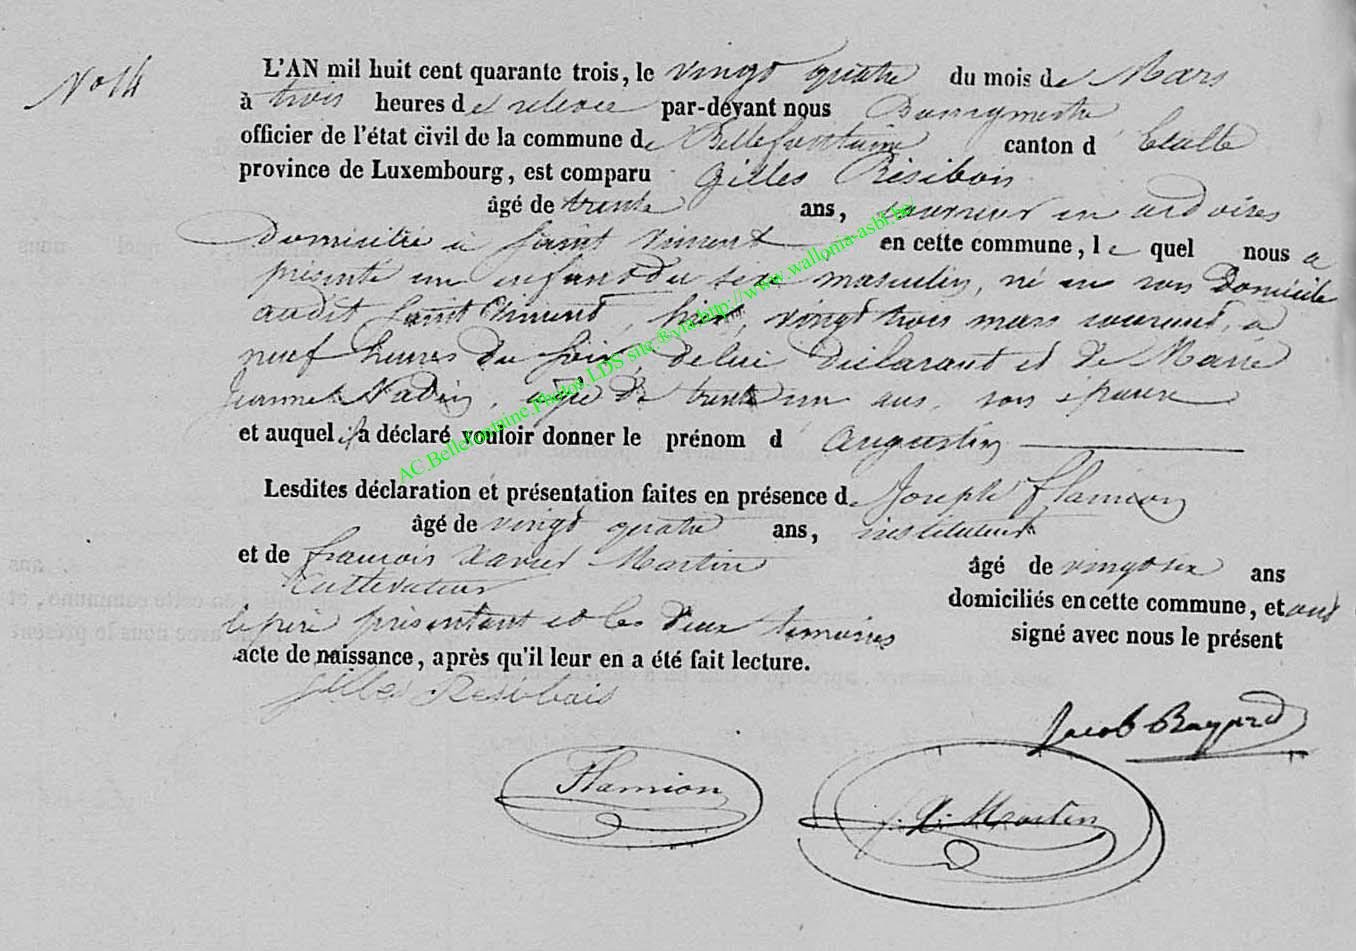 No 14
L'AN mil huit cent quarante trois, le vingt quatre du mois de Mars
à trois heures de relevée par-devant nous Bourgmestre
officier de l'état civil de la commune de Bellefontaine canton d' Etalle
province de Luxembourg, est comparu Gilles Résibois
âgé de trente ans, couvreur en ardoises
domicilié à Saint Vincent en cette commune, lequel nous a
présenté un enfant du sexe masculin, né en son domicile
audit Saint Vincent, hier, vingt trois mars courant, à
neuf heures du soir, de lui déclarant et de Marie
Jeanne Nadin, agée de trente un ans, son épouse
et auquel il a déclaré vouloir donner le prénom d' Augustin
Lesdites déclaration et présentation faites en présence de Joseph Flamion
âgé de vingt quatre ans, instituteur
et de François Xavier Martin âgé de vingt six ans
cultivateur domiciliés en cette commune, et ont
le père présentant et les deux témoins signé avec nous le présent
acte de naissance, après qu'il leur en a été fait lecture.
Gilles Resibois
Jacob Bayard
Flamion
f. X. Martin
AC.Bellefontaine.Photos.LDS site:®via http://www.wallonia-asbl.be/